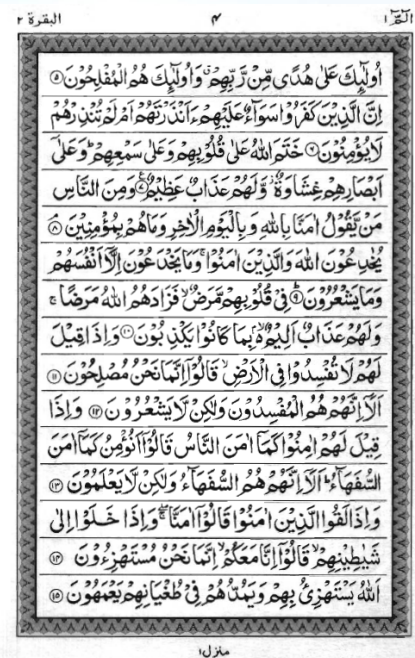 الٓمّٓ ١
٤
البقرة ٢
اُولٰٓئِكَ عَلٰى هُدًى مِّنْ رَّبِّهِمْ ۙ وَاُولٰٓئِكَ هُمُ الْمُفْلِحُوْنَ ۵
اِنَّ الَّذِيْنَ كَفَرُوْا سَوَآءٌ عَلَيْهِمْ ءَاَنْذَرْتَهُمْ اَمْ لَمْ تُنْذِرْهُمْ
لَا يُؤْمِنُوْنَ ۶ خَتَمَ اللّٰهُ عَلٰى قُلُوْبِهِمْ وَعَلٰى سَمْعِهِمْ ؕ وَعَلٰٓى
اَبْصَارِهِمْ غِشَاوَةٌ ۫ وَّلَهُمْ عَذَابٌ عَظِيْمٌ ۷ وَمِنَ النَّاسِ
مَنْ يَّقُوْلُ اٰمَنَّا بِاللّٰهِ وَبِالْيَوْمِ الْاٰخِرِ وَمَا هُمْ بِمُؤْمِنِيْنَ ۸
يُخٰدِعُوْنَ اللّٰهَ وَالَّذِيْنَ اٰمَنُوْا ۚ وَمَا يَخْدَعُوْنَ اِلَّآ اَنْفُسَهُمْ
وَمَا يَشْعُرُوْنَ ۹ فِيْ قُلُوْبِهِمْ مَّرَضٌ ۙ فَزَادَهُمُ اللّٰهُ مَرَضًا ۚ
وَلَهُمْ عَذَابٌ اَلِيْمٌ ۢ ۙ بِمَا كَانُوْا يَكْذِبُوْنَ ۱۰ وَاِذَا قِيْلَ
لَهُمْ لَا تُفْسِدُوْا فِى الْاَرْضِ ۙ قَالُوْٓا اِنَّمَا نَحْنُ مُصْلِحُوْنَ ۱۱
اَلَآ اِنَّهُمْ هُمُ الْمُفْسِدُوْنَ وَلٰكِنْ لَّا يَشْعُرُوْنَ ۱۲ وَاِذَا
قِيْلَ لَهُمْ اٰمِنُوْا كَمَآ اٰمَنَ النَّاسُ قَالُوْٓا اَنُؤْمِنُ كَمَآ اٰمَنَ
السُّفَهَآءُ ؕ اَلَآ اِنَّهُمْ هُمُ السُّفَهَآءُ وَلٰكِنْ لَّا يَعْلَمُوْنَ ۱۳
وَاِذَا لَقُوا الَّذِيْنَ اٰمَنُوْا قَالُوْٓا اٰمَنَّا ۖ وَاِذَا خَلَوْا اِلٰى
شَيٰطِيْنِهِمْ ۙ قَالُوْٓا اِنَّا مَعَكُمْ ۙ اِنَّمَا نَحْنُ مُسْتَهْزِءُوْنَ ۱۴
اَللّٰهُ يَسْتَهْزِئُ بِهِمْ وَيَمُدُّهُمْ فِيْ طُغْيَانِهِمْ يَعْمَهُوْنَ ۱۵
منزل ۱